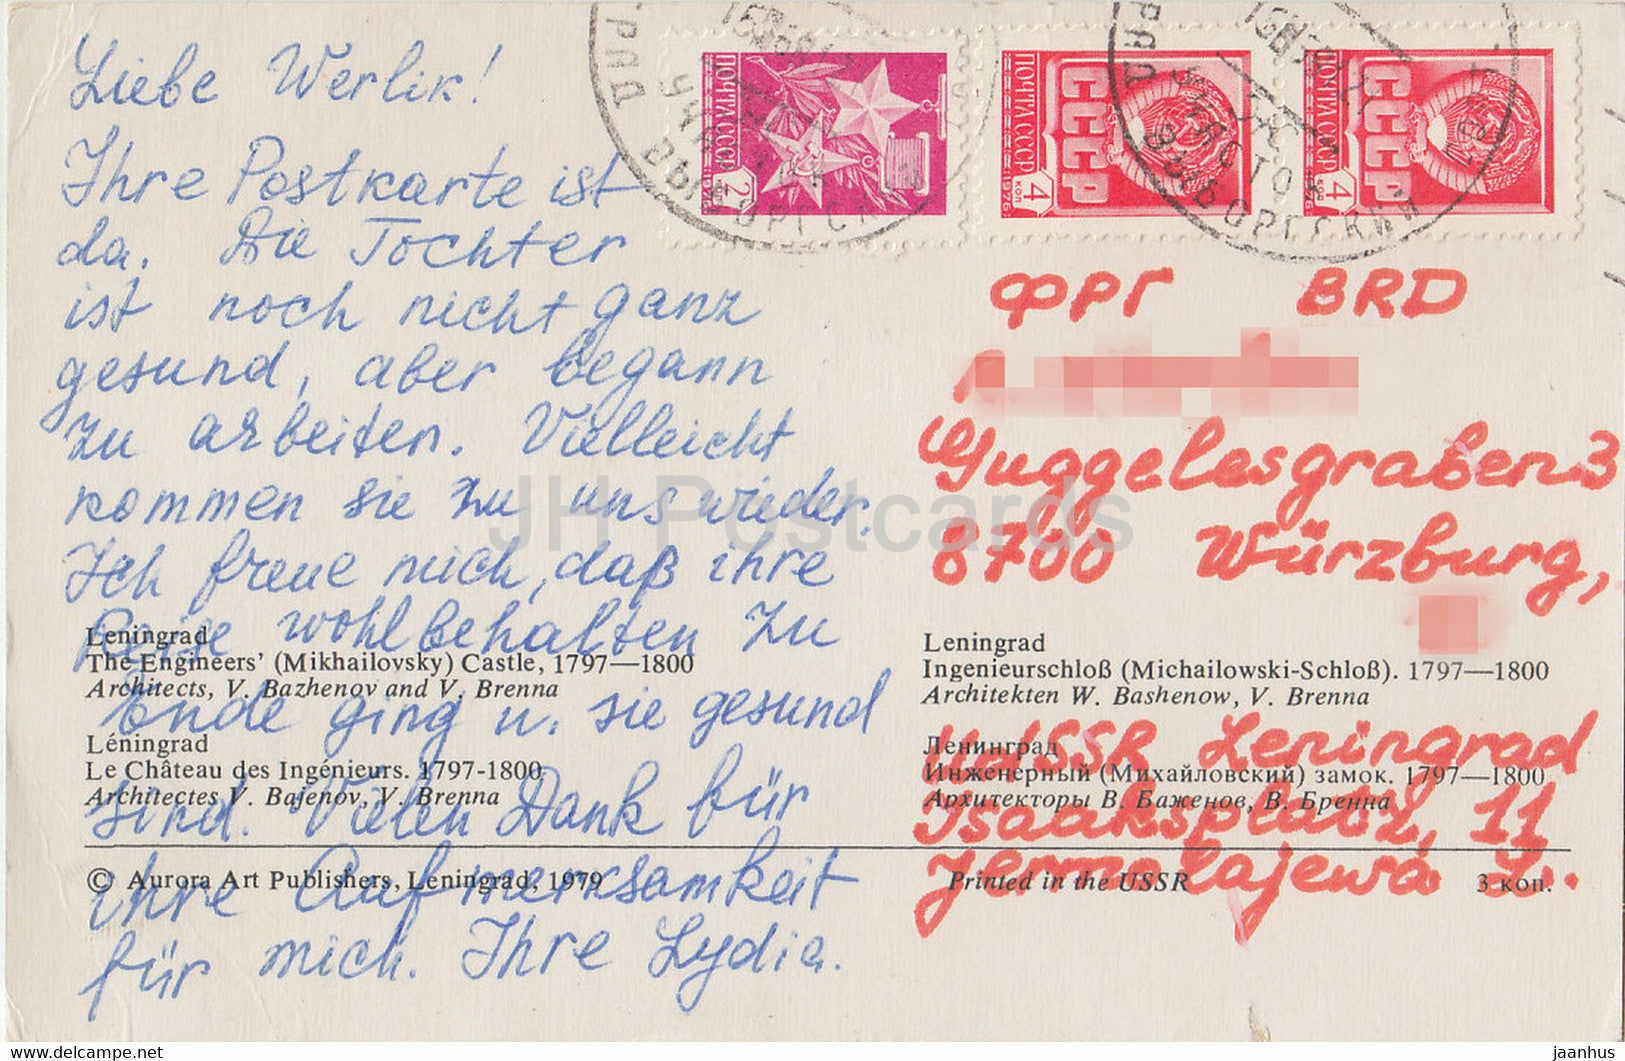 Liebe Werlik!
Ihre Postkarte ist
da. Die Tochter
ist noch nicht ganz
gesund, aber begann
zu arbeiten. Vielleicht
kommen sie zu uns wieder.
Ich freue mich, daß ihre
Reise wohlbehalten zu
Ende ging u. sie gesund
sind. Vielen Dank für
ihre Aufmerksamkeit
für mich. Ihre Lydia.
ПОЧТА СССР
2 КОП
1976
ПОЧТА СССР
СССР
4 КОП
1976
ПОЧТА СССР
СССР
4 КОП
1976
ВЫБОРГСКИЙ
ФРГ BRD
Guggelesgraben 3
8700 Würzburg,
UdSSR Leningrad
Isaaksplatz, 11
Jermolajewa L.
Leningrad
The Engineers' (Mikhailovsky) Castle, 1797—1800
Architects, V. Bazhenov and V. Brenna
Léningrad
Le Château des Ingénieurs. 1797-1800
Architectes V. Bajenov, V. Brenna
Leningrad
Ingenieurschloß (Michailowski-Schloß). 1797—1800
Architekten W. Bashenow, V. Brenna
Ленинград
Инженерный (Михайловский) замок. 1797—1800
Архитекторы В. Баженов, В. Бренна
© Aurora Art Publishers, Leningrad, 1979
Printed in the USSR
3 коп.
JH Postcards
www.delcampe.net
jaanhus